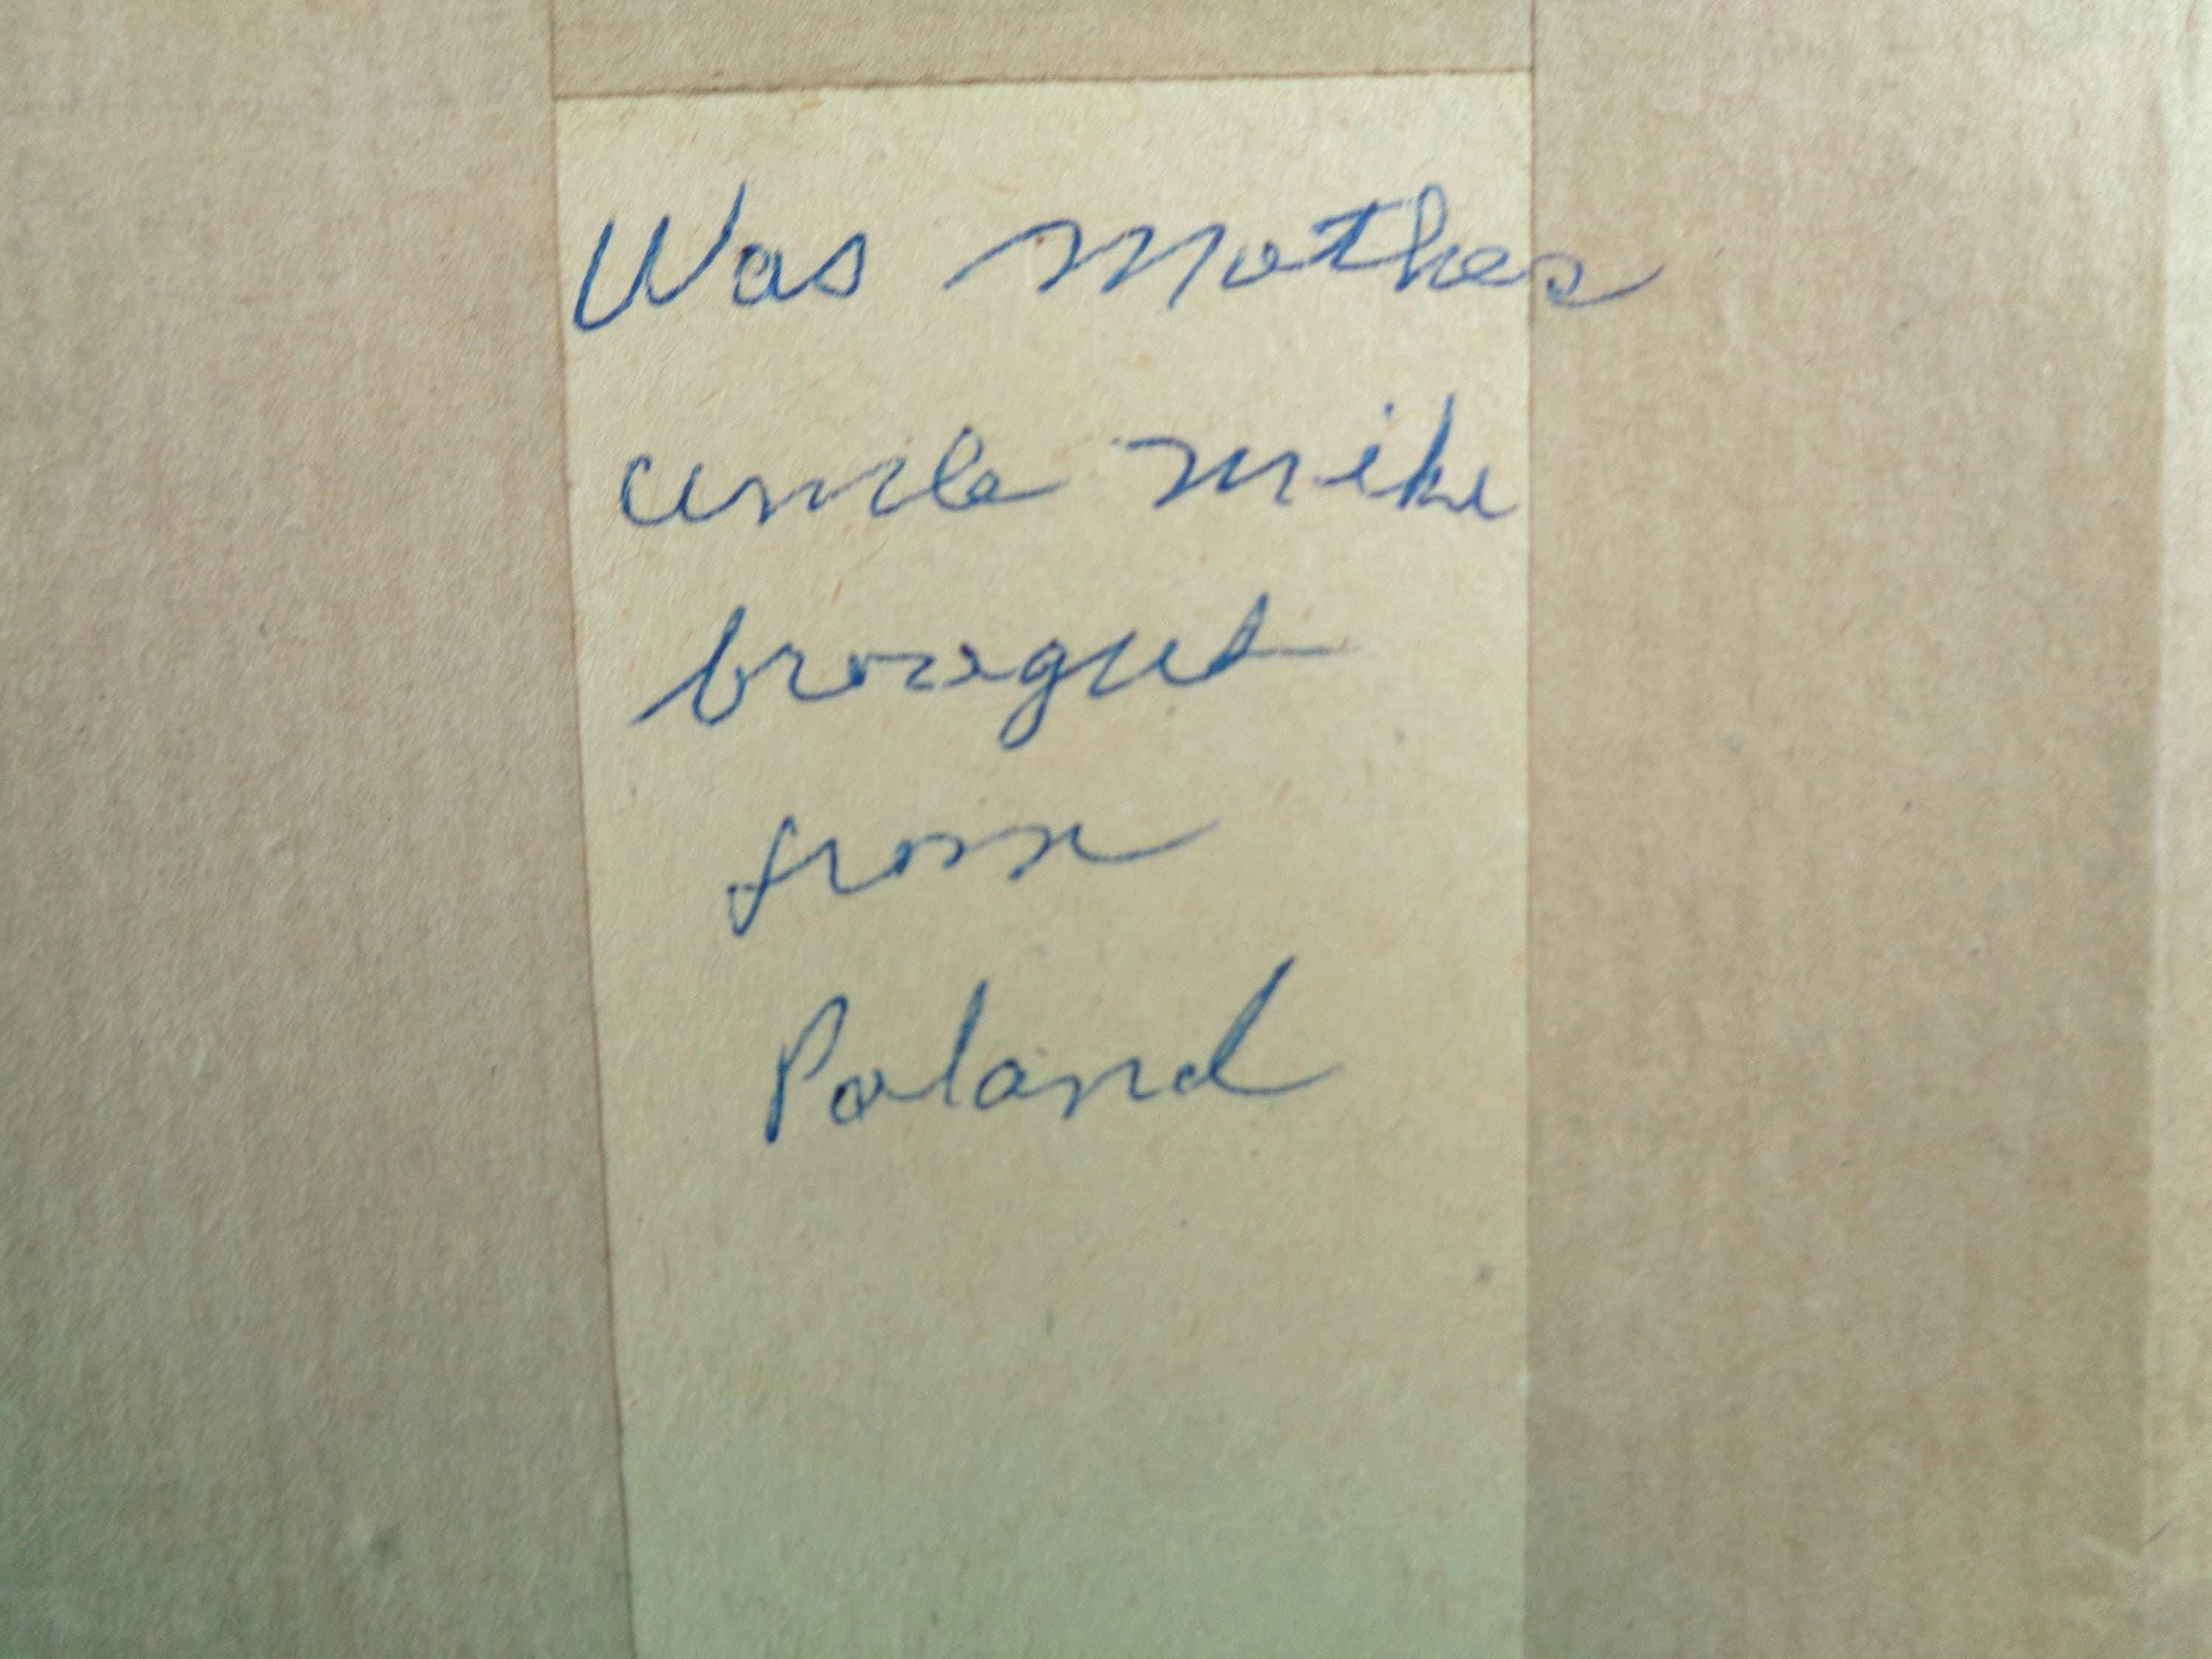 Was mothes
uncle mike
brougut
from
Poland